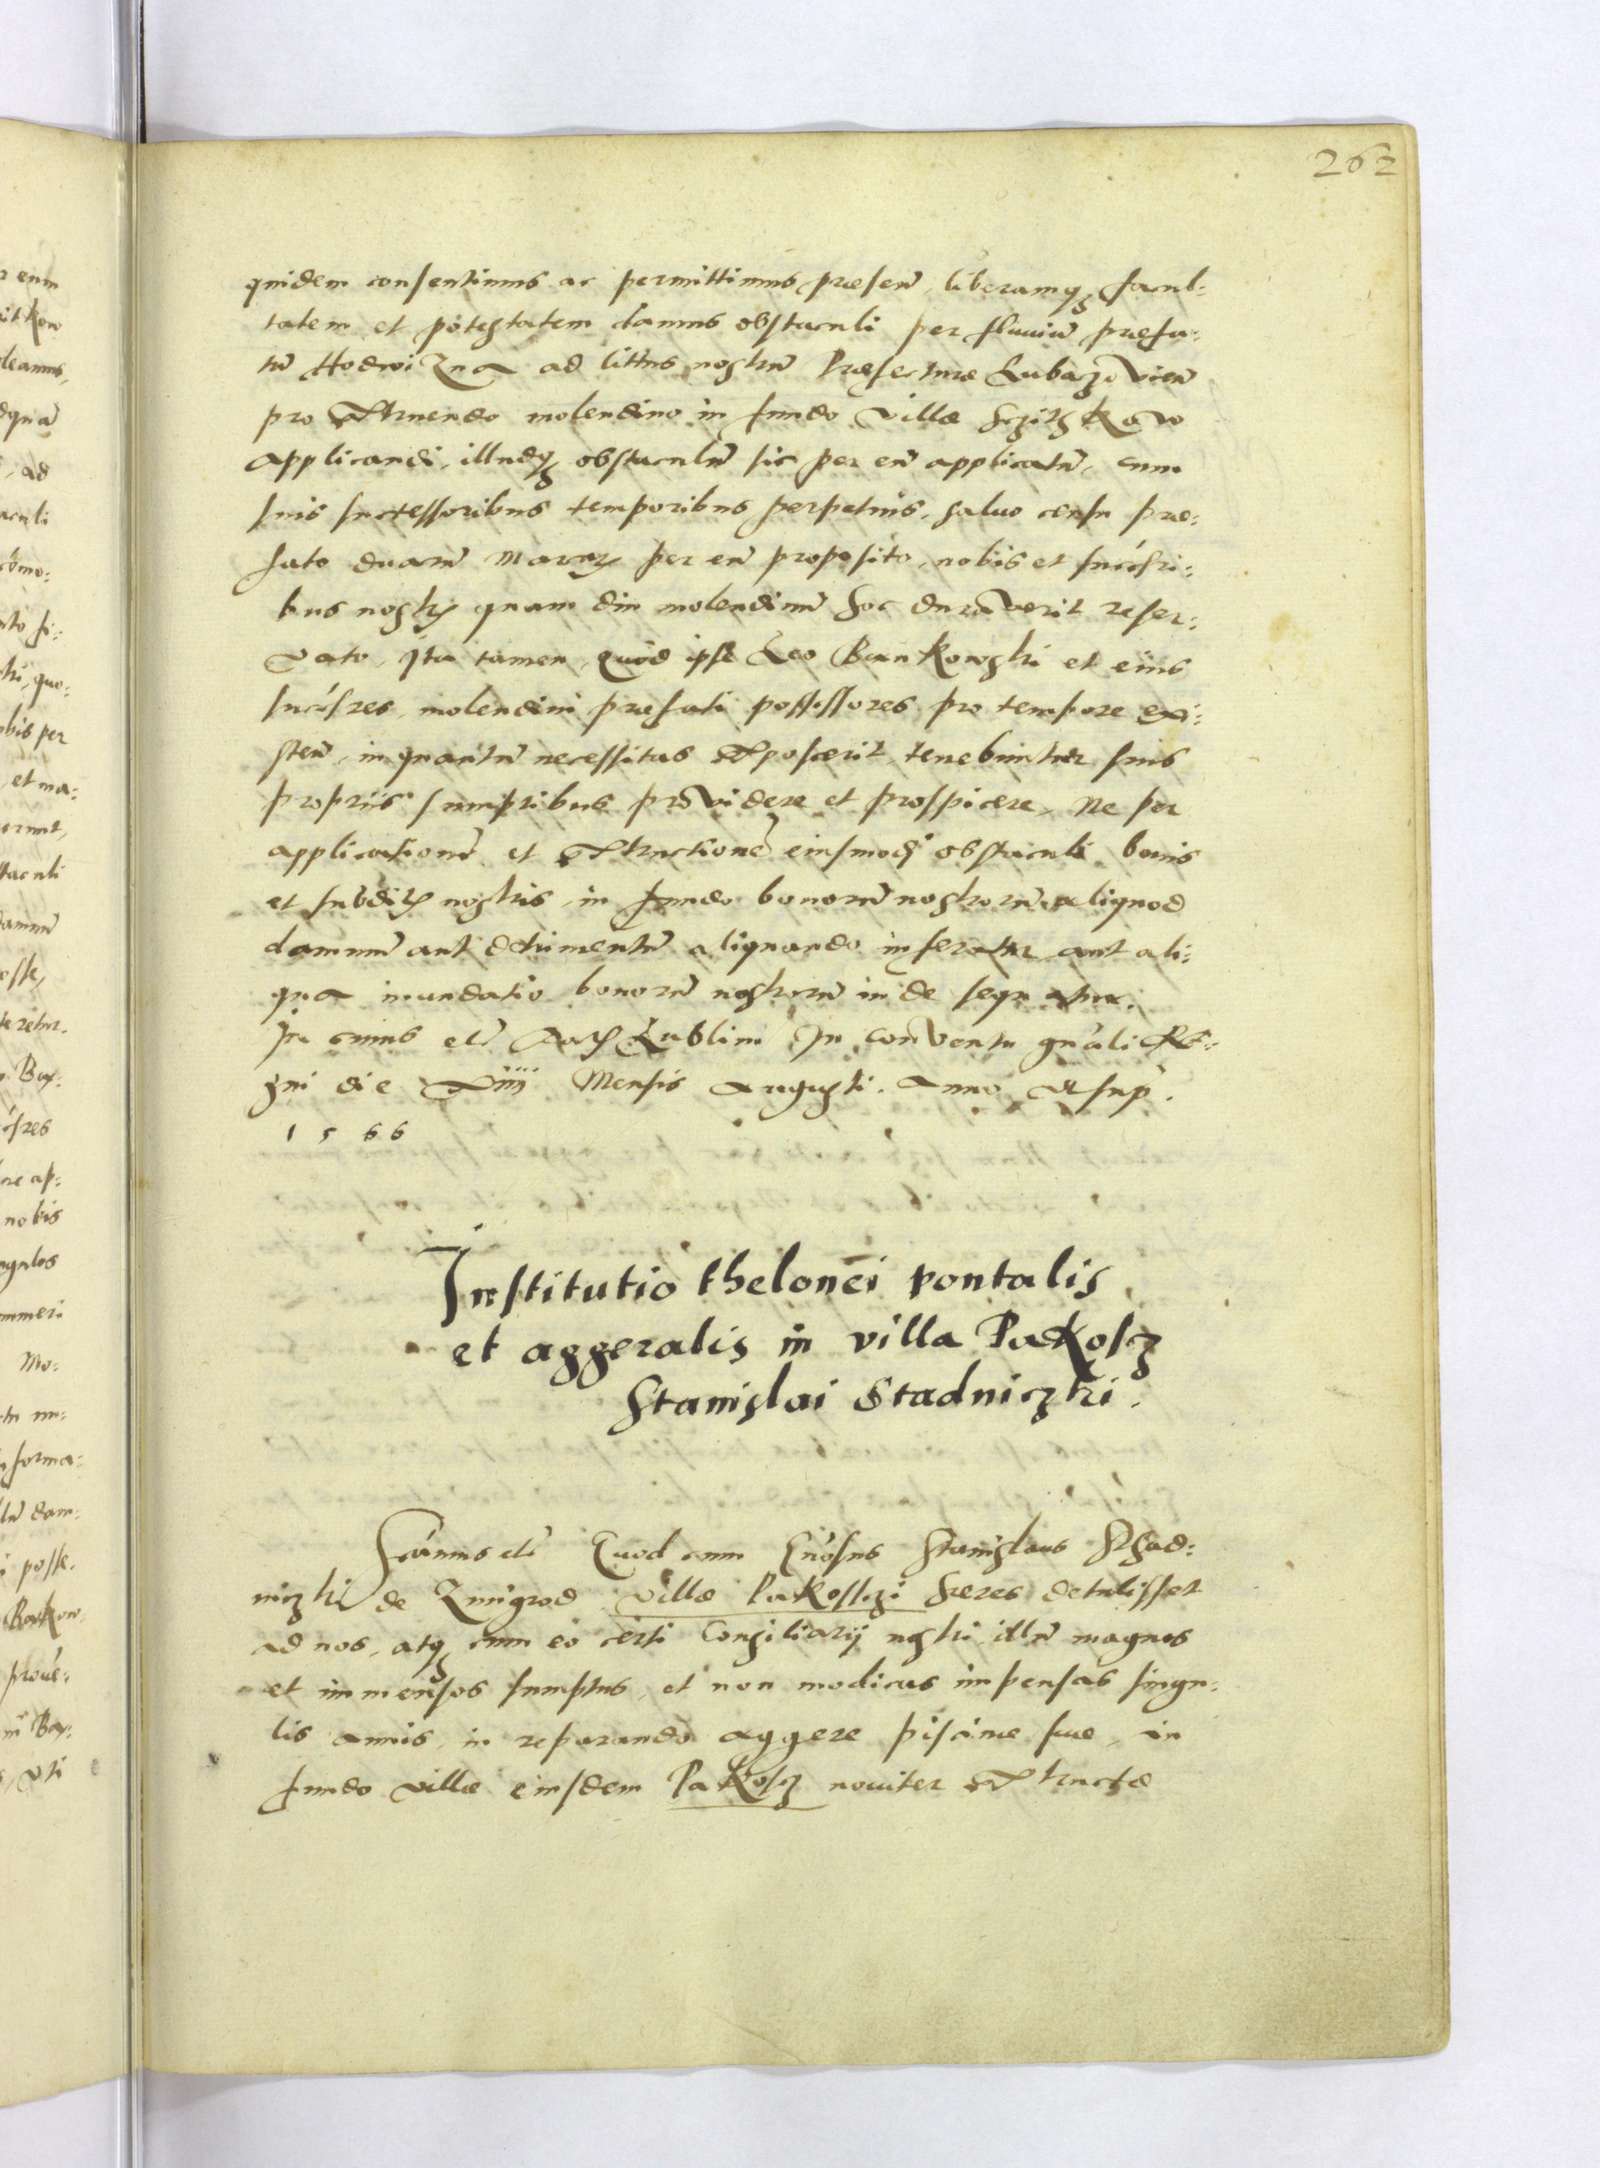 262
quidem consentimus ac permittimus præsen̄, liberamqꝫ facul:
tatem et potestatem damus obstaculi per fluuiū præfa:
tū Hodwizna ad littus nostrū Præfecturæ Lubaczovien̄
pro extruendo molendino in fundo villæ Sczitzkowo
applicandi, illudqꝫ obstaculū sic per eū applicatū, cum
suis successoribus temporibus perpetuis, saluo censu præ:
fato duarū marcꝝ per eū proposito, nobis et succ̄sri:
bus nostrꝭ quam diu molendinū hoc duraverit reser:
vato, Ita tamen, quod ipse Leo Bankowski et eius
succ̄sres, molendini præfati possessores pro tempore exi:
sten̄, in quantū necessitas exposcerit, tenebuntur suis
propriis sumptibus providere et prospicere, Ne per
applicationē et extructionē eiusmodi obstaculi bonis
et subditꝭ nostris, in fundo bonorū nostrorū aliquod
damnū aut detrimentū aliquando inferatur, aut ali:
qua inundatio bonorū nostrorū inde sequatur.
In cuius etc̄ Datꝭ Lublini In conventu gn̄ali Re:
gni die xiiii Mensis Augusti. Anno ut sup̄.
1566
Institutio thelonei pontalis
et aggeralis in villa Pakosz
Stanislai Stadniczki.
Sc̄imus etc̄ Quod cum Gn̄osus Stanislaus Sthad:
niczki de Zmigrod villæ Pakosczi heres detulisset
ad nos, atqꝫ cum eo certi Consiliarij nostri, illū magnos
et immensos sumptus, et non modicas impensas singu:
lis annis, in reparando aggere piscinæ suæ, in
fundo villæ eiusdem Pakosz nouiter extructæ